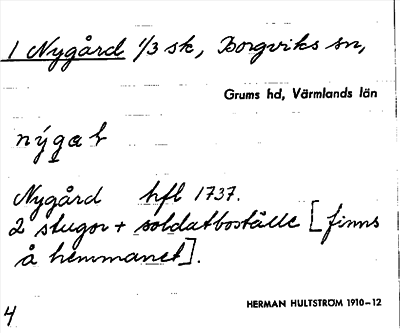 1 Nygård 1/3 sk, Borgviks sn,
Grums hd, Värmlands län
Nygård hfl 1737.
2 stugor + soldatboställe [finns
å hemmanet].
HERMAN HULTSTRÖM 1910–12
4